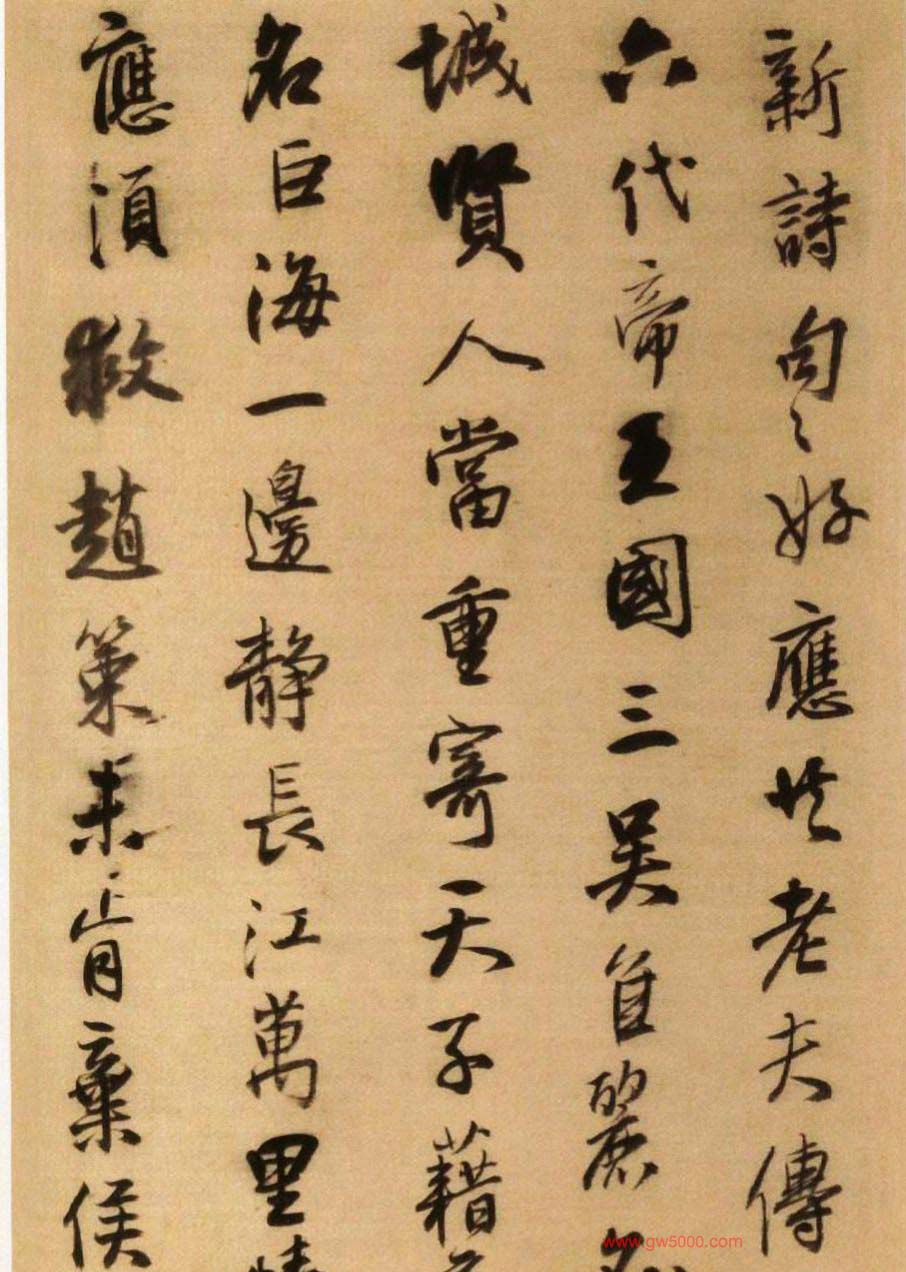 新詩句々好應共老夫傳
六代帝王國三吳佳麗
城賢人當重寄天子藉
名巨海一邊靜長江萬里
應須救趙策未肯棄侯
www.gw5000.com